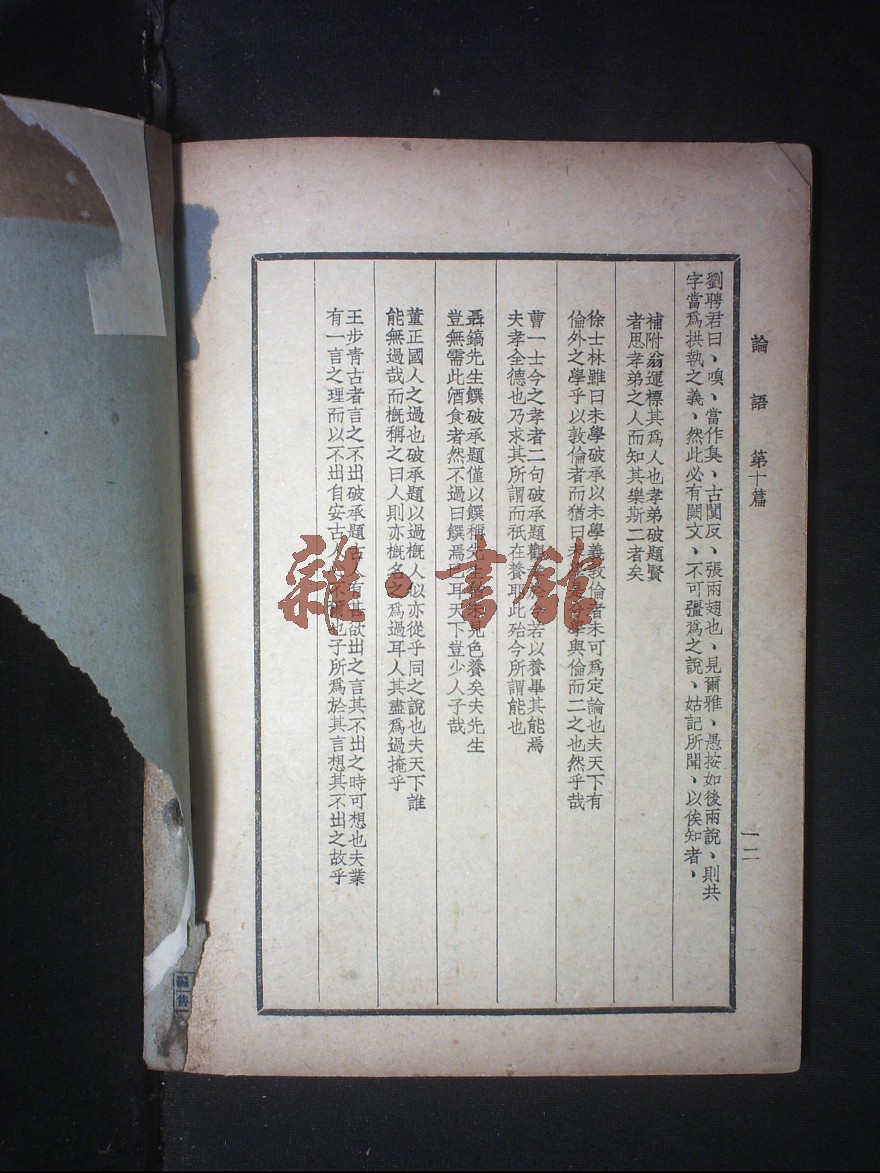 論語 第十篇
一二
劉聘君曰、嗅、當作狊、古閴反、張兩翅也、見爾雅、愚按如後兩說、則共
字當爲拱執之義、然此必有闕文、不可彊爲之說、姑記所聞、以俟知者、
補附翁運標其爲人也孝弟破題賢
者思孝弟之人而知其樂斯二者矣
徐士林雖曰未學破承以未學義敦倫者未可爲定論也夫天下有
倫外之學乎以敦倫者而猶曰未學是分學與倫而二之也然乎哉
曹一士今之孝者二句破承題觀孝於今若以養畢其能焉
夫孝全德也乃求其所謂而祇在養耶此殆今所謂能也
聶鎬先生饌破承題僅以饌稱先生見色養矣夫先生
豈無需此酒食者然不過曰饌焉已耳天下豈少人子哉
董正國人之過也破承題以過概人似亦從乎同之說也夫天下誰
能無過哉而概稱之曰人則亦概名之爲過耳人其盡爲過掩乎
王步青古者言之不出破承題古人有甚欲出之言其不出之時可想也夫業
有一言之理而以不出自安古人不爾也子所爲於其言想其不出之故乎
雜·書館
編售